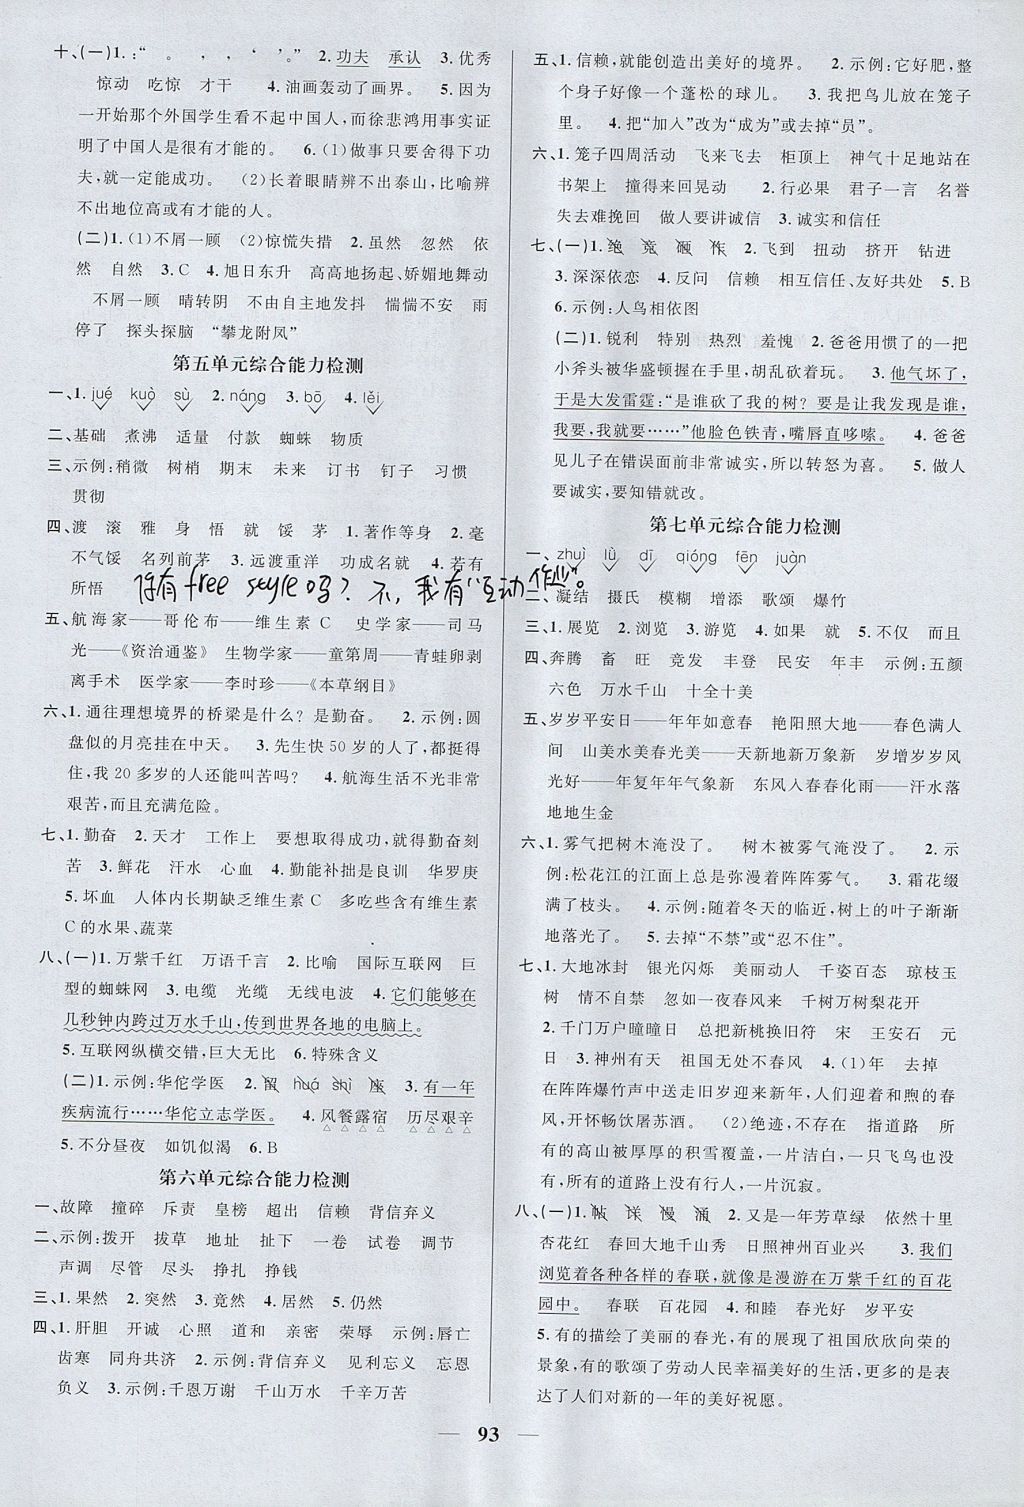 十、(一)1.:“ 。 , , ‘ ’。” 2.功夫 承认 3.优秀
惊动 吃惊 才干 4.油画轰动了画界。 5.因为
一开始那个外国学生看不起中国人,而徐悲鸿用事实证
明了中国人是很有才能的。 6.(1)做事只要舍得下功
夫,就一定能成功。 (2)长着眼睛辨不出泰山,比喻辨
不出地位高或有才能的人。
(二)1.(1)不屑一顾 (2)惊慌失措 2.虽然 忽然 依
然 自然 3.C 4.旭日东升 高高地扬起、娇媚地舞动
不屑一顾 晴转阴 不由自主地发抖 惴惴不安 雨
停了 探头探脑 “攀龙附凤”
第五单元综合能力检测
一、1.jué kuò sù 2.náng 3.bō 4.lěi
二、基础 煮沸 适量 付款 蜘蛛 物质
三、示例:稍微 树梢 期末 未来 订书 钉子 习惯
贯彻
四、渡 滚 雅 身 悟 就 馁 茅 1.著作等身 2.毫
不气馁 名列前茅 3.远渡重洋 功成名就 4.若有
所悟
你有free style吗?不,我有“互动作业”。
五、航海家——哥伦布——维生素C 史学家——司马
光——《资治通鉴》 生物学家——童第周——青蛙卵剥
离手术 医学家——李时珍——《本草纲目》
六、1.通往理想境界的桥梁是什么?是勤奋。 2.示例:圆
盘似的月亮挂在中天。 3.先生快50岁的人了,都挺得
住,我20多岁的人还能叫苦吗? 4.航海生活不光非常
艰苦,而且充满危险。
七、1.勤奋 2.天才 工作上 要想取得成功,就得勤奋刻
苦 3.鲜花 汗水 心血 4.勤能补拙是良训 华罗庚
5.坏血 人体内长期缺乏维生素C 多吃些含有维生素
C的水果、蔬菜
八、(一)1.万紫千红 万语千言 2.比喻 国际互联网 巨
型的蜘蛛网 3.电缆 光缆 无线电波 4.它们能够在
几秒钟内跨过万水千山,传到世界各地的电脑上。
5.互联网纵横交错,巨大无比 6.特殊含义
(二)1.示例:华佗学医 2.留 huá shì 座 3.有一年
疾病流行……华佗立志学医。 4.风餐露宿 历尽艰辛
5.不分昼夜 如饥似渴 6.B
第六单元综合能力检测
一、故障 撞碎 斥责 皇榜 超出 信赖 背信弃义
二、示例:拨开 拔草 地址 扯下 一卷 试卷 调节
声调 尽管 尽头 挣扎 挣钱
三、1.果然 2.突然 3.竟然 4.居然 5.仍然
四、1.肝胆 开诚 心照 道和 亲密 荣辱 示例:唇亡
齿寒 同舟共济 2.示例:背信弃义 见利忘义 忘恩
负义 3.示例:千恩万谢 千山万水 千辛万苦
五、1.信赖,就能创造出美好的境界。 2.示例:它好肥,整
个身子好像一个蓬松的球儿。 3.我把鸟儿放在笼子
里。 4.把“加入”改为“成为”或去掉“员”。
六、1.笼子四周活动 飞来飞去 柜顶上 神气十足地站在
书架上 撞得来回晃动 2.行必果 君子一言 名誉
失去难挽回 做人要讲诚信 3.诚实和信任
七、(一)1.绝 竞 砸 作 2.飞到 扭动 挤开 钻进
3.深深依恋 4.反问 信赖 相互信任、友好共处 5.B
6.示例:人鸟相依图
(二)1.锐利 特别 热烈 羞愧 2.爸爸用惯了的一把
小斧头被华盛顿握在手里,胡乱砍着玩。 3.他气坏了,
于是大发雷霆:“是谁砍了我的树?要是让我发现是谁,
我要,我就要……”他脸色铁青,嘴唇直哆嗦。 4.爸爸
见儿子在错误面前非常诚实,所以转怒为喜。 5.做人
要诚实,要知错就改。
第七单元综合能力检测
一、zhuì lǜ dī qióng fēn juàn
二、凝结 摄氏 模糊 增添 歌颂 爆竹
三、1.展览 2.浏览 3.游览 4.如果 就 5.不仅 而且
四、奔腾 畜 旺 竞发 丰登 民安 年丰 示例:五颜
六色 万水千山 十全十美
五、岁岁平安日——年年如意春 艳阳照大地——春色满人
间 山美水美春光美——天新地新万象新 岁增岁岁风
光好——年复年年气象新 东风入春春化雨——汗水落
地地生金
六、1.雾气把树木淹没了。 树木被雾气淹没了。 2.示
例:松花江的江面上总是弥漫着阵阵雾气。 3.霜花缀
满了枝头。 4.示例:随着冬天的临近,树上的叶子渐渐
地落光了。 5.去掉“不禁”或“忍不住”。
七、1.大地冰封 银光闪烁 美丽动人 千姿百态 琼枝玉
树 情不自禁 忽如一夜春风来 千树万树梨花开
2.千门万户曈曈日 总把新桃换旧符 宋 王安石 元
日 3.神州有天 祖国无处不春风 4.(1)年 去掉
在阵阵爆竹声中送走旧岁迎来新年,人们迎着和煦的春
风,开怀畅饮屠苏酒。 (2)绝迹,不存在 指道路 所
有的高山被厚厚的积雪覆盖,一片洁白,一只飞鸟也没
有,所有的道路上没有行人,一片沉寂。
八、(一)1.帖 详 慢 涌 2.又是一年芳草绿 依然十里
杏花红 春回大地千山秀 日照神州百业兴 3.我们
浏览着各种各样的春联,就像是漫游在万紫千红的百花
园中。 春联 百花园 4.和睦 春光好 岁平安
5.有的描绘了美丽的春光,有的展现了祖国欣欣向荣的
景象,有的歌颂了劳动人民幸福美好的生活,更多的是表
达了人们对新的一年的美好祝愿。
93